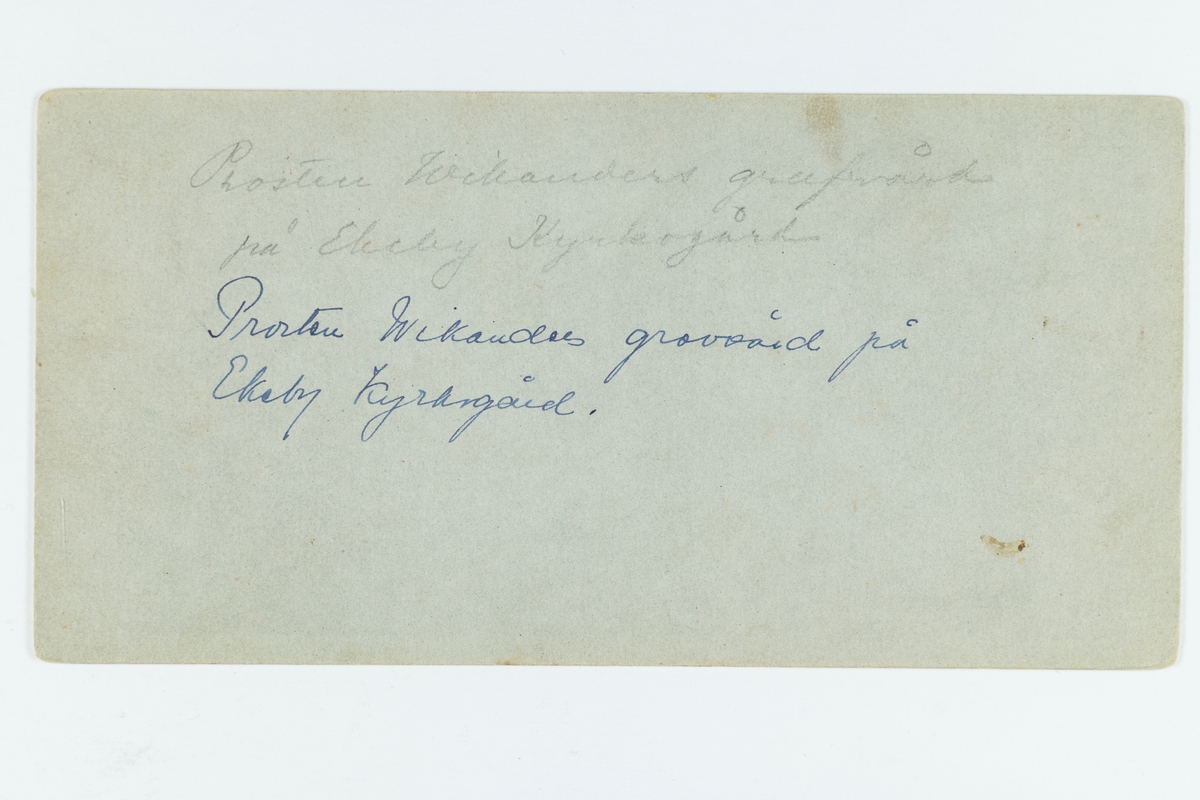 Prosten Wikanders grafvård
på Ekeby Kyrkogård
Prosten Wikanders gravvård på
Ekeby Kyrkogård.